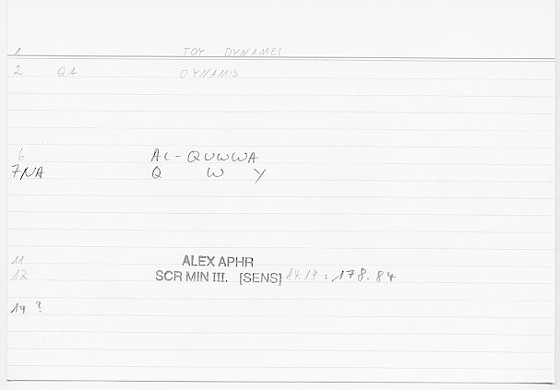 1 TOY DYNAMEI
2 QA DYNAMIS
6 AL-QUWWA
7 NA Q W Y
11 ALEX APHR
12 SCR MIN III. [SENS] 84.19 : 178.84
14 ?